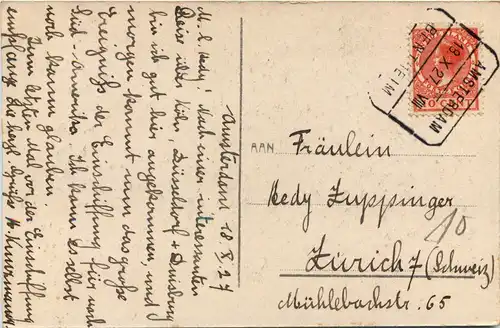 Amsterdam 18.X.27
M. l. Hedy! Nach einer interessanten
Reise über Köln, Düsseldorf + Duisburg
bin ich gut hier angekommen, und
morgen kommt nun das große
Ereignis der Einschiffung für nach
Süd-Amerika. Ich kann es selbst
noch kaum glauben.
Zum letzten Mal vor der Einschiffung
empfange die herzl. Grüße
AAN
Fräulein
Hedy Zuppinger
Zürich 7 (Schweiz)
Mühlebachstr. 65
10
AMSTERDAM
18.X.27 VIII